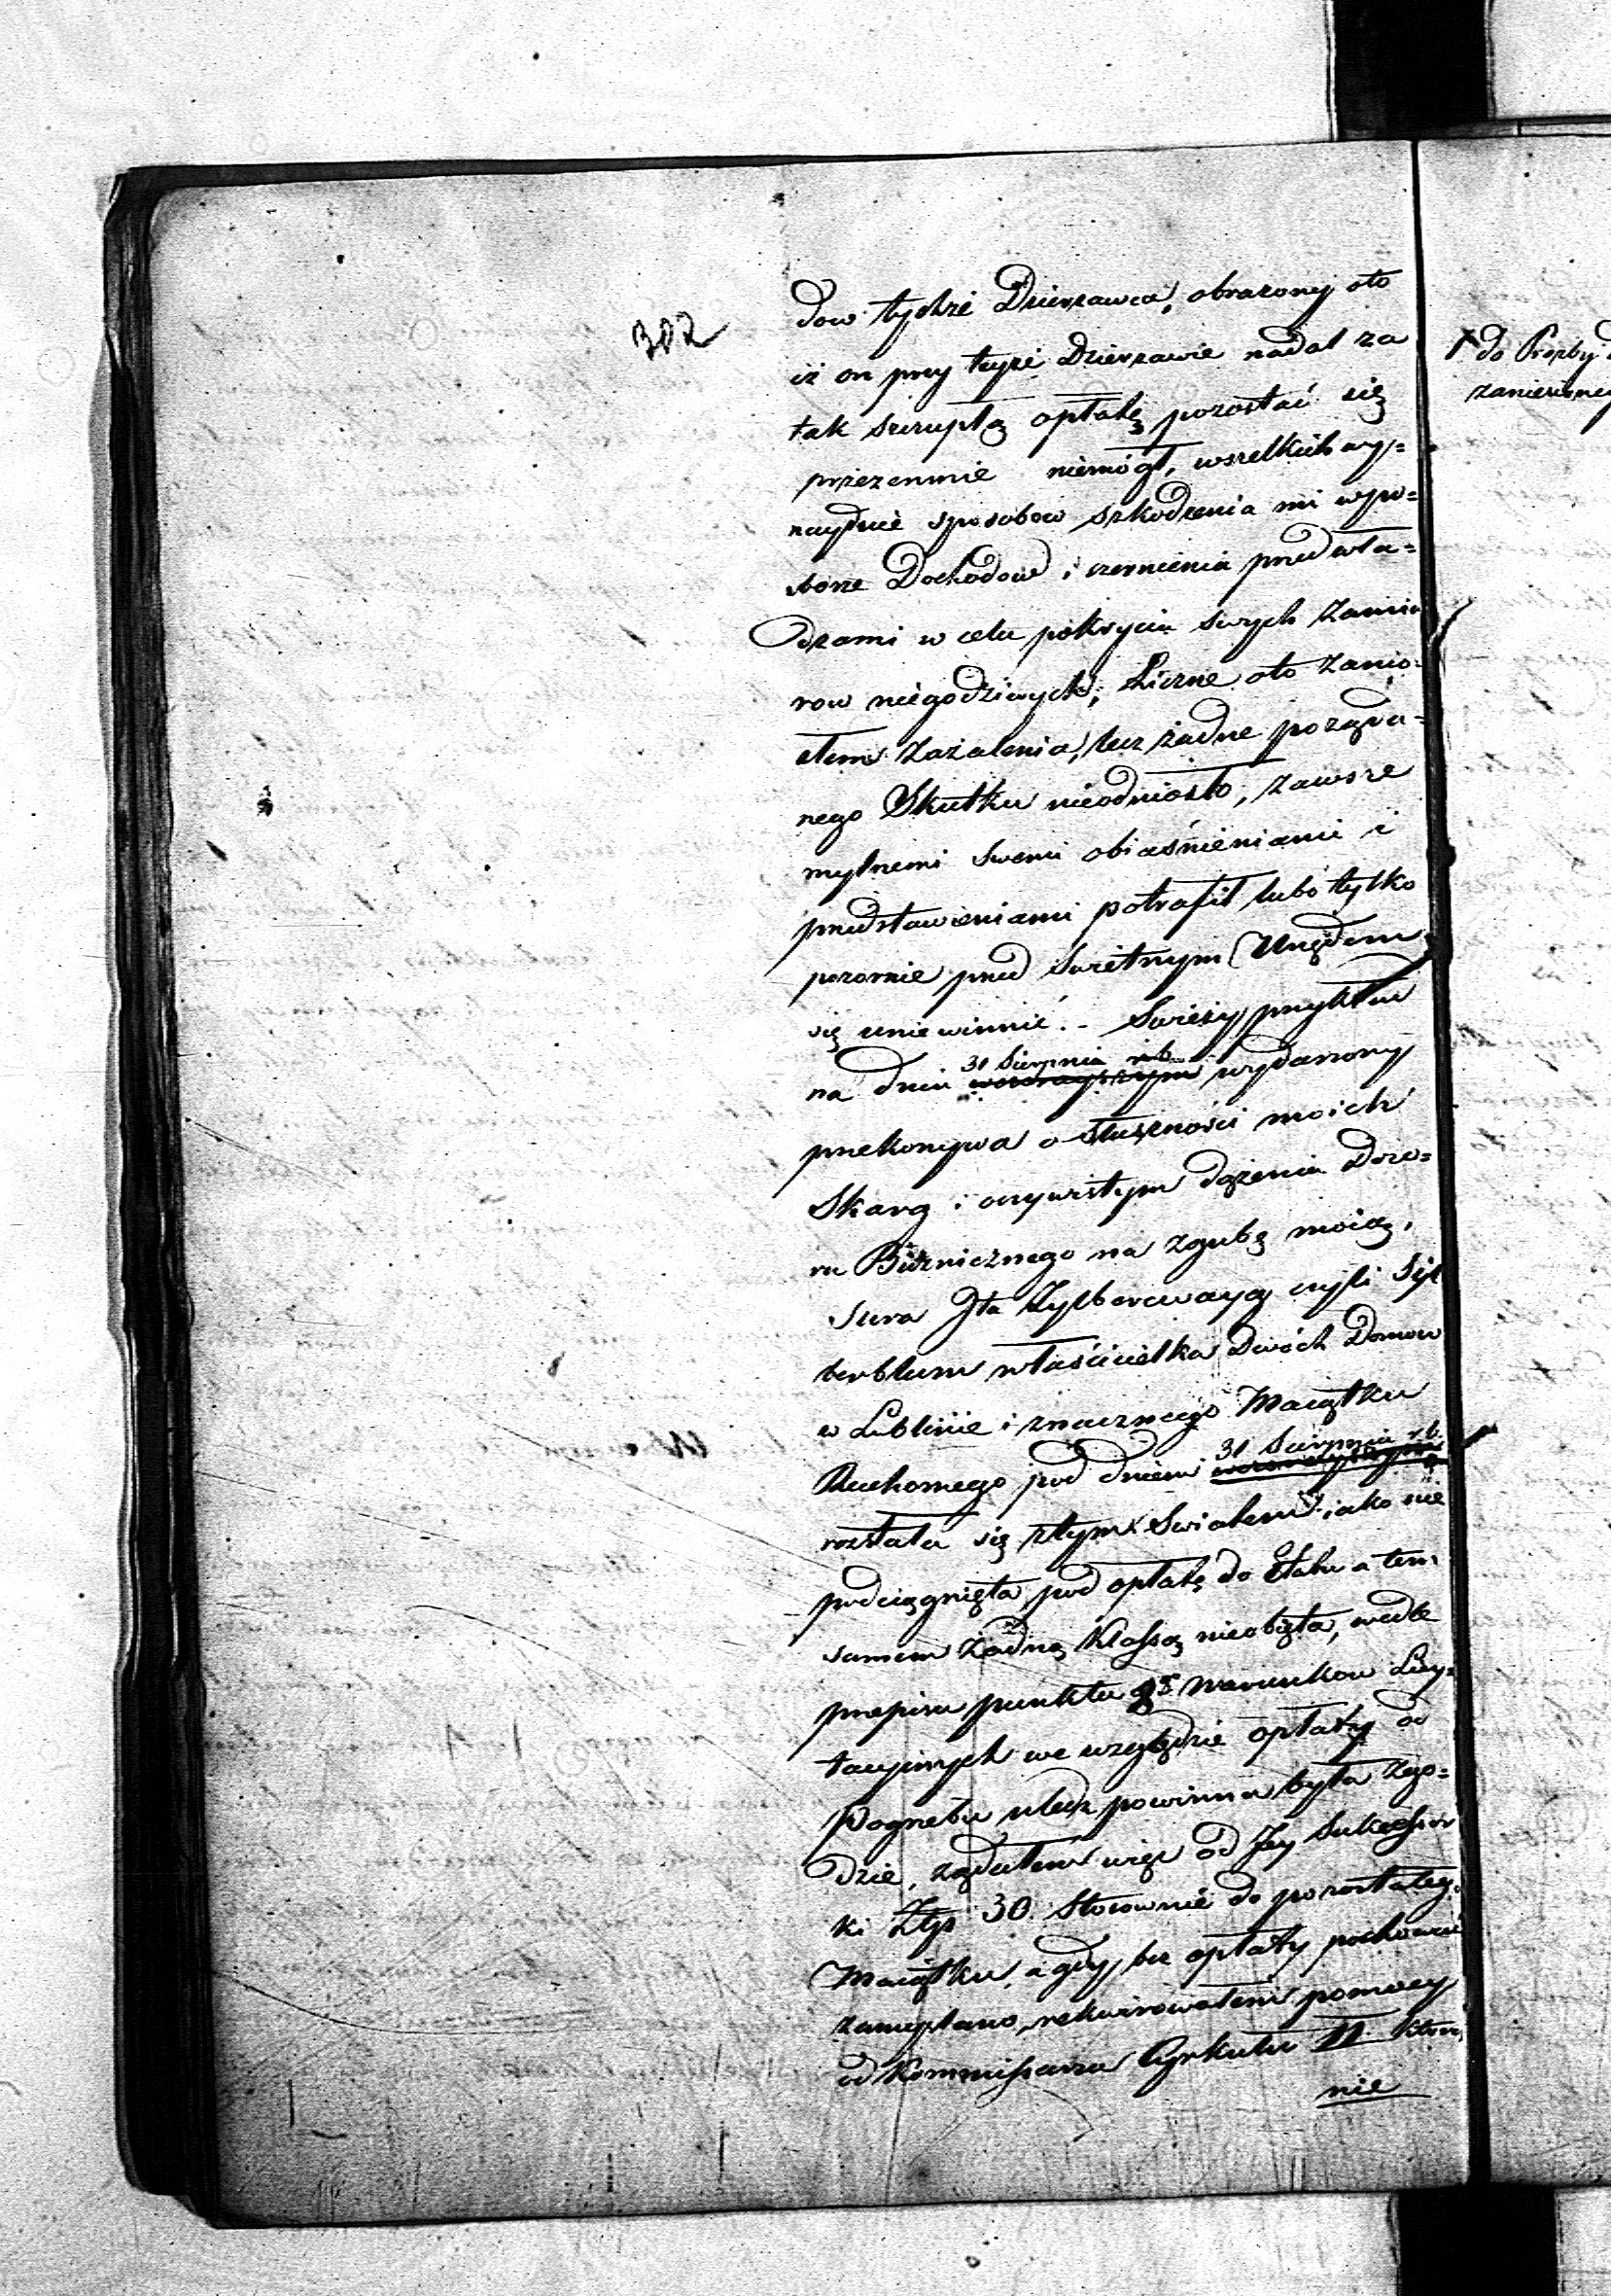 302
dow tychże Dzierzawca, obrażony oto
iż on przy teyże Dzierzawie nadal za
tak szczupłą opłatę pozostać się
przezemnie niemógł, wszelkich wy-
naydnie sposobow szkodzenia mi w po-
borze Dochodow i czernienia przed wła-
dzami w celu pokrycia swych zamia
row niegodziwych; Liczne oto zanio-
słem Zażalenia, lecz żadne pożąda-
nego Skutku nieodniosło, zawsze
mylnemi swemi obiaśnieniami i
przedstawieniami potrafił lubo tylko
pozornie przed Świetnym Urzędem
się uniewinnić. - Świeży przykład
na dniu 31 Sierpnia r.b. wydarzony
przekonywa o słuszności moich
Skarg i oczywistym dążeniu Dozo-
ru Bóżniczego na zgubę moią.
Sura Jta Zylbercwayg czyli Syl
berblum właścicielka Dwóch Domow
w Lublinie i znacznego Maiątku
Ruchomego pod dniem 31 Sierpnia r.b.
rozstała się z tym Swiatem; iako nie
podciągnięta pod opłatę do Etatu a tem
samem żadną Klassą nieobięta, wedle
przepisu punktu warunkow Licy-
tacyinych we względzie opłaty od
Pogrzebu uledz powinna była zgo-
dzie, żądałem więc od Jey Sukcessor
ki Złp 30. Stosownie do pozostałeg.
Maiątku, a gdy bez opłaty pochować
zamyślano, rekwirowałem pomocy
od Kommissarza Cyrkułu II. który
nie
do Prozby
zaniesioney